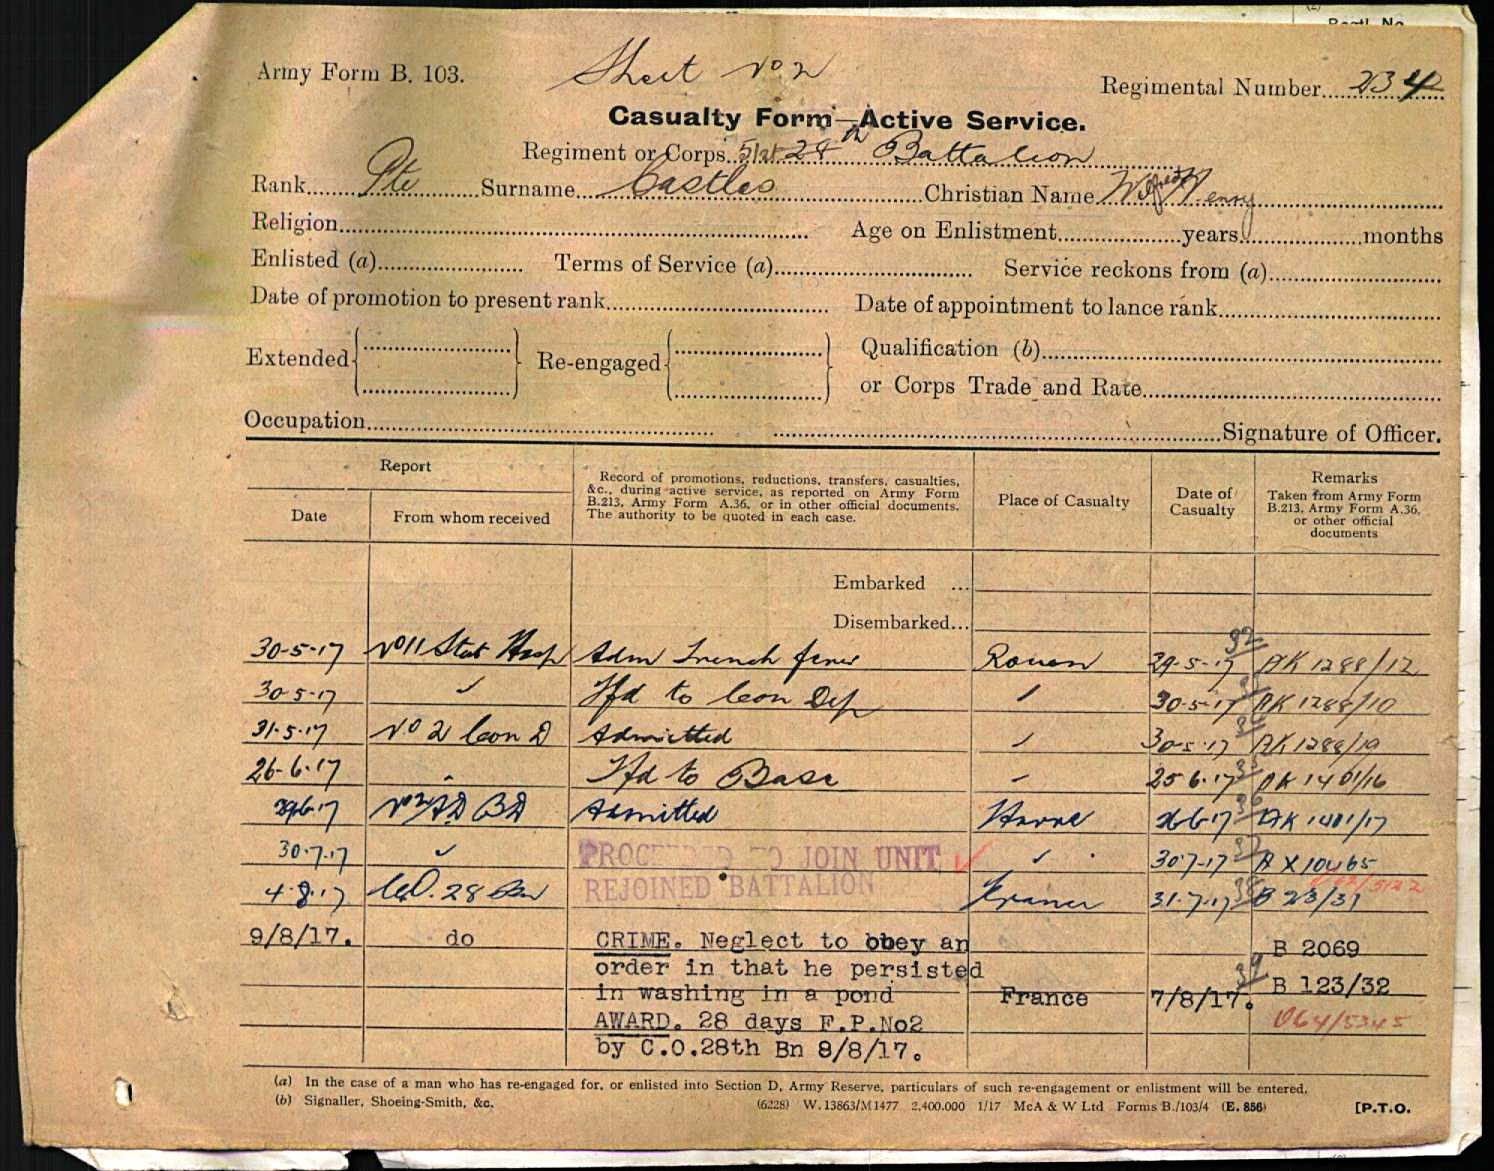 Regtl. No.
Army Form B. 103.
Sheet No 2
Regimental Number 234
Casualty Form—Active Service.
Regiment or Corps 51st 28th Battalion
Rank Pte Surname Castles Christian Name Wilfred Henry
Religion Age on Enlistment years months
Enlisted (a) Terms of Service (a) Service reckons from (a)
Date of promotion to present rank Date of appointment to lance rank
Extended Re-engaged Qualification (b)
or Corps Trade and Rate
Occupation Signature of Officer.
Report
Date From whom received
Record of promotions, reductions, transfers, casualties,
&c., during active service, as reported on Army Form
B.213, Army Form A.36, or in other official documents.
The authority to be quoted in each case.
Place of Casualty
Date of
Casualty
Remarks
Taken from Army Form
B.213, Army Form A.36,
or other official
documents
Embarked ...
Disembarked...
30-5-17 No 11 Stat Hosp Adm Trench fever Rouen 29-5-17 32 AK 1288/12
30-5-17 Tfd to Con Dep 30-5-17 AK 1288/10
31-5-17 No 2 Con D Admitted 30-5-17 34 AK 1288/19
26-6-17 Tfd to Base 25 6-17 35 AK 1401/16
29-6-17 BD Admitted Havre 26-6-17 36 AK 1401/17
30-7-17 PROCEEDED TO JOIN UNIT 30-7-17 37 AX 10465
4-8-17 C.O. 28 Bn REJOINED BATTALION France 31-7-17 38 B 23/31
9/8/17. do CRIME. Neglect to obey an B 2069
order in that he persisted
in washing in a pond France 7/8/17. 39 B 123/32
AWARD. 28 days F.P.No2 064/5345
by C.O.28th Bn 8/8/17.
(a) In the case of a man who has re-engaged for, or enlisted into Section D, Army Reserve, particulars of such re-engagement or enlistment will be entered.
(b) Signaller, Shoeing-Smith, &c. (6228) W.13863/M1477 2,400,000 1/17 McA & W Ltd Forms B./103/4 (E. 856) [P.T.O.